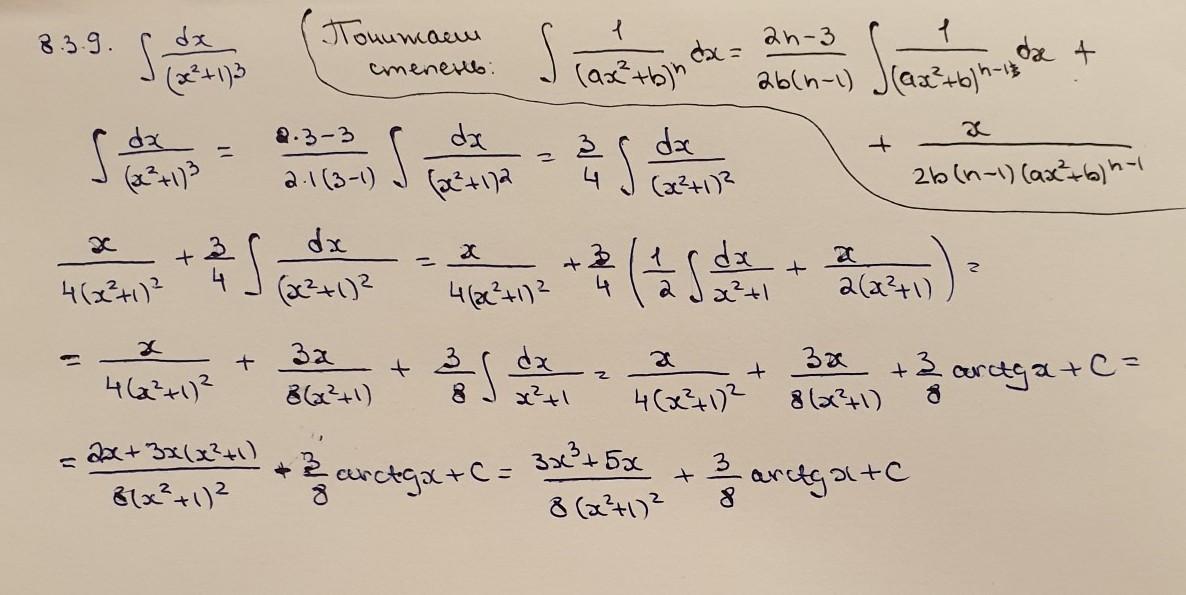 8.3.9. ∫ dx/(x²+1)³ Понижаем степень: ∫ 1/(ax²+b)ⁿ dx = (2n-3)/(2b(n-1)) ∫ 1/(ax²+b)ⁿ⁻¹ dx +
+ x/(2b(n-1)(ax²+b)ⁿ⁻¹)
∫ dx/(x²+1)³ = (2·3-3)/(2·1(3-1)) ∫ dx/(x²+1)² = 3/4 ∫ dx/(x²+1)²
x/(4(x²+1)²) + 3/4 ∫ dx/(x²+1)² = x/(4(x²+1)²) + 3/4 (1/2 ∫ dx/(x²+1) + x/(2(x²+1))) =
= x/(4(x²+1)²) + 3x/(8(x²+1)) + 3/8 ∫ dx/(x²+1) = x/(4(x²+1)²) + 3x/(8(x²+1)) + 3/8 arctgx + C =
= (2x+3x(x²+1))/(8(x²+1)²) + 3/8 arctgx + C = (3x³+5x)/(8(x²+1)²) + 3/8 arctgx + C